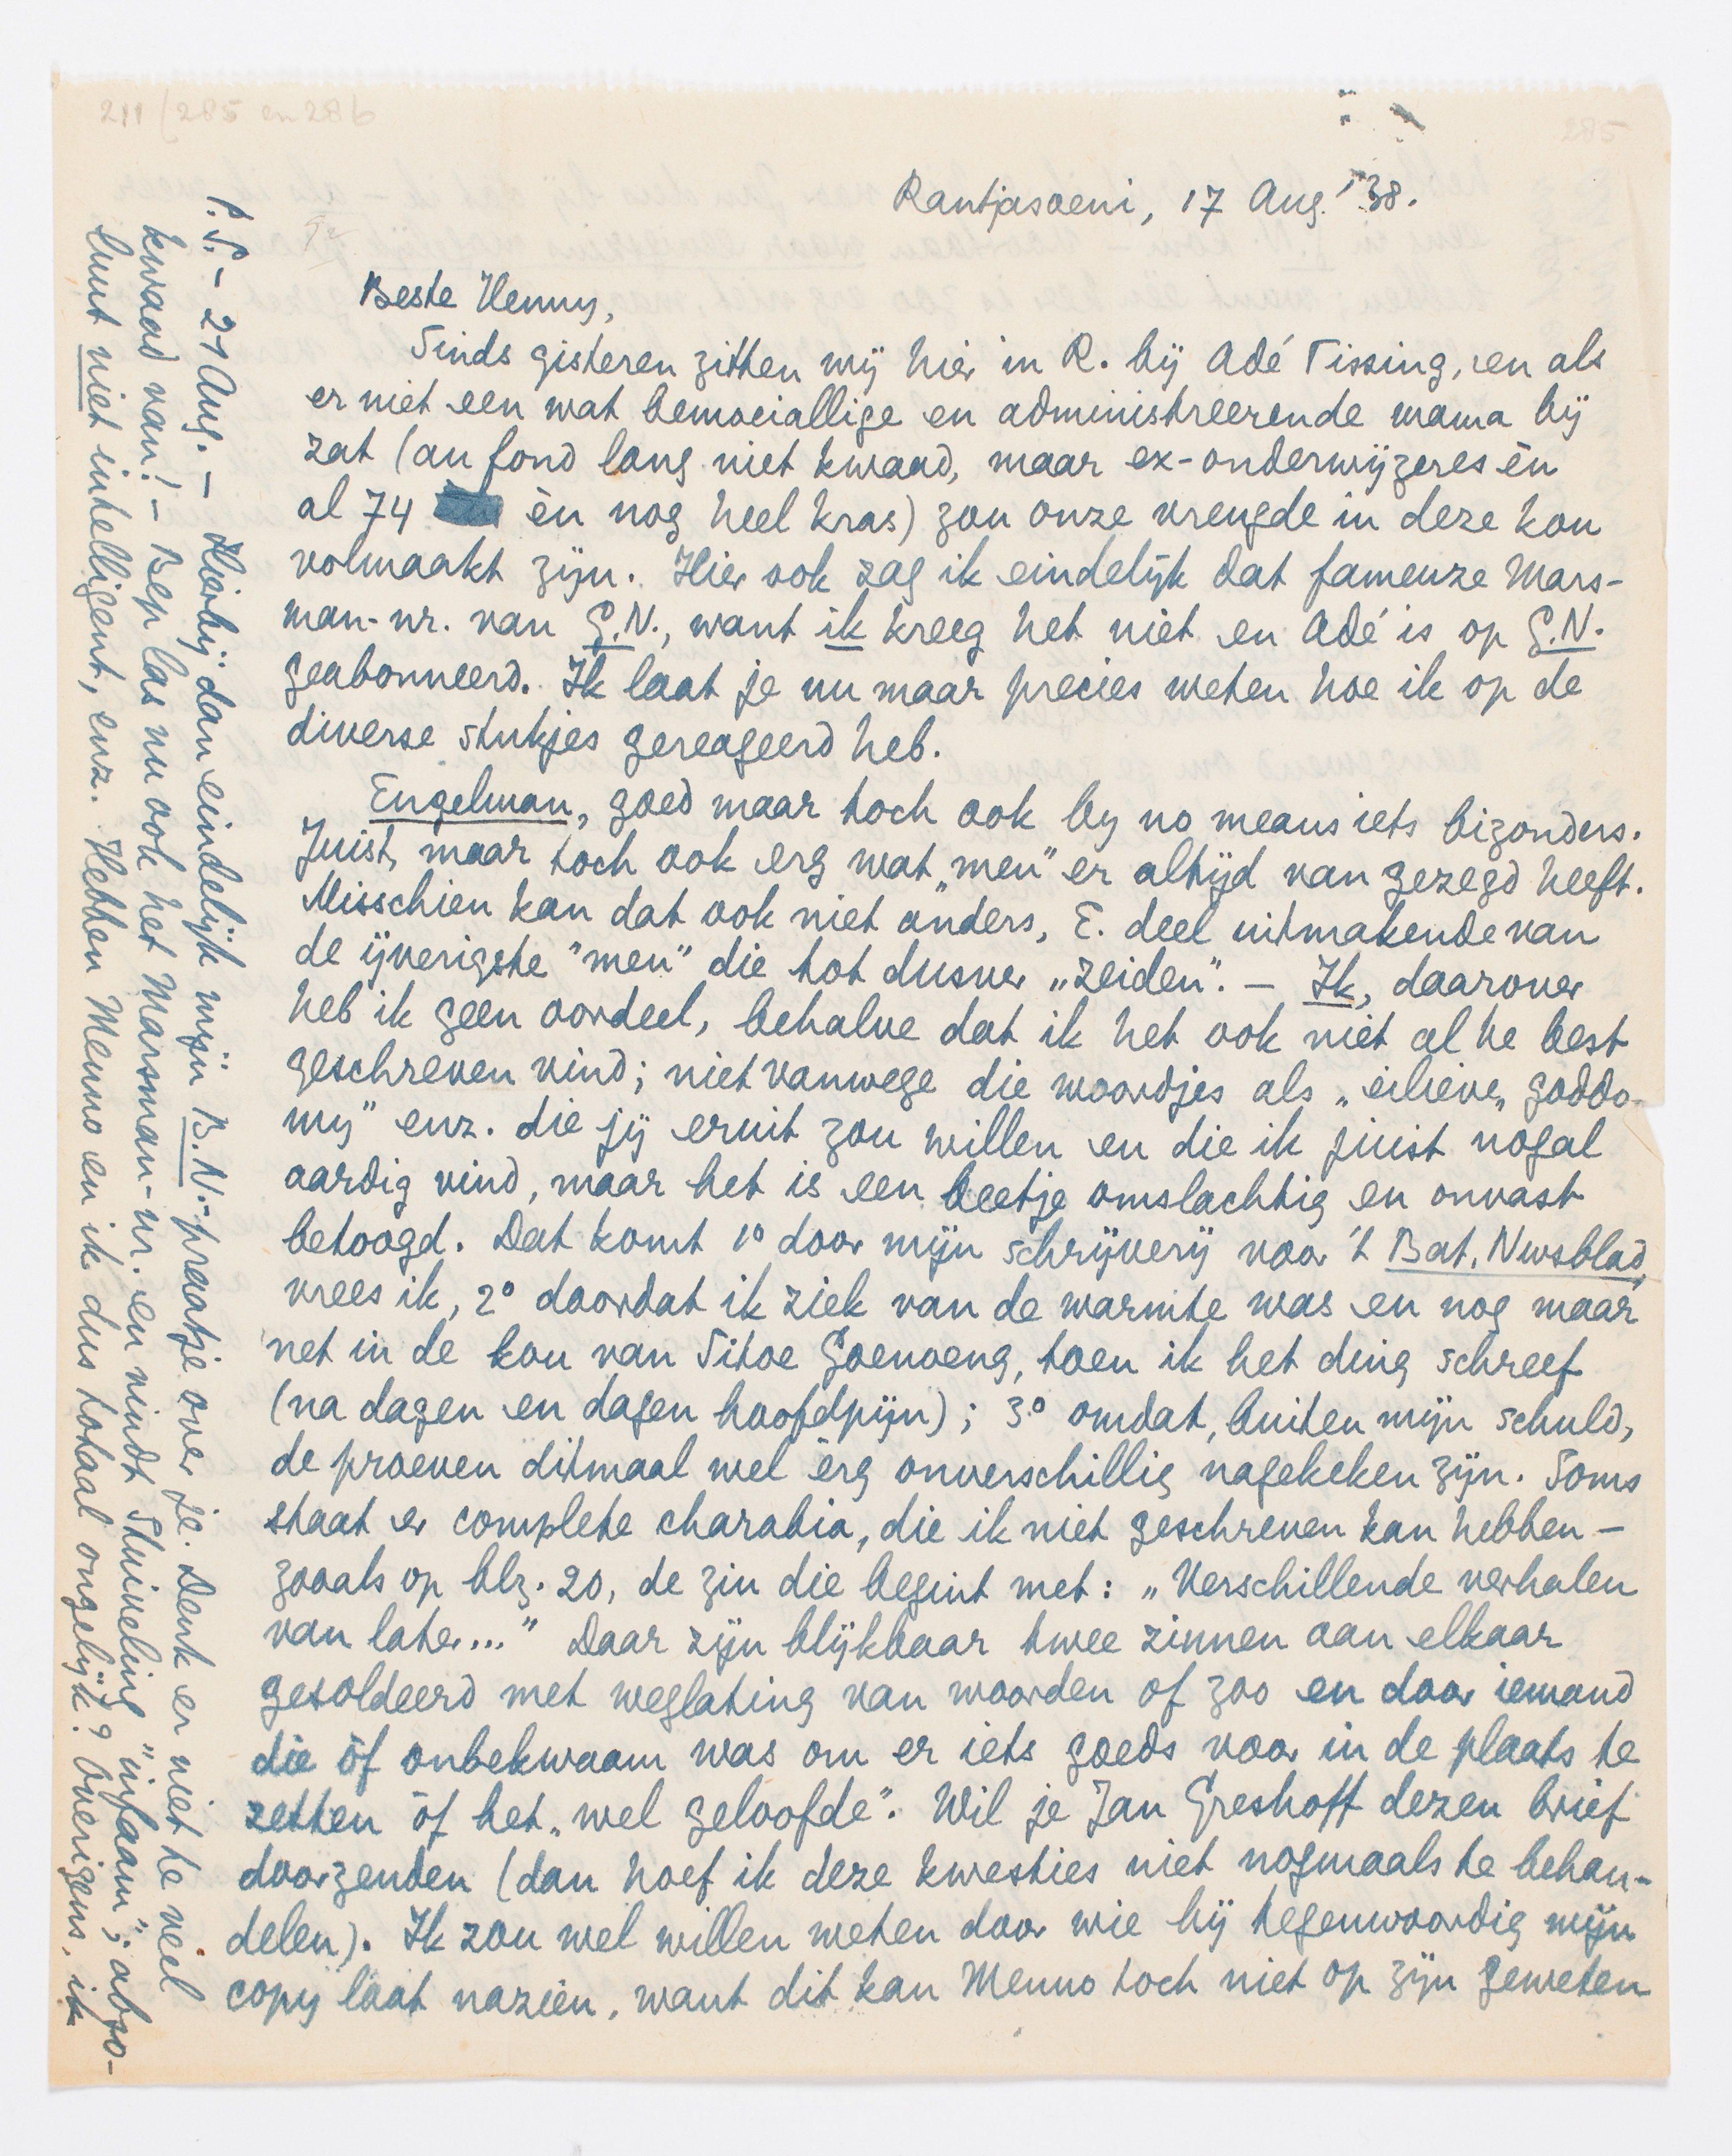 211 (285 en 286
285
Rantjasoeni, 17 Aug. '38.
Beste Henny,
Sinds gisteren zitten wij hier in R. bij Adé Tissing, en als
er niet een wat bemoeiallige en administreerende mama bij
zat (au fond lang niet kwaad, maar ex-onderwijzeres èn
al 74 èn nog heel kras) zou onze vreugde in deze kou
volmaakt zijn. Hier ook zag ik eindelijk dat fameuze Mars-
man-nr. van G.N., want ik kreeg het niet en Adé is op G.N.
geabonneerd. Ik laat je nu maar precies weten hoe ik op de
diverse stukjes gereageerd heb.
Engelman, goed maar toch ook by no means iets bizonders.
Juist, maar toch ook erg wat „men" er altijd van gezegd heeft.
Misschien kan dat ook niet anders, E. deel uitmakende van
de ijverigste "men" die tot dusver „zeiden". – Ik, daarover
heb ik geen oordeel, behalve dat ik het ook niet al te best
geschreven vind; niet vanwege die woordjes als „eilieve„ goddo-
my" enz. die jij eruit zou willen en die ik juist nogal
aardig vind, maar het is een beetje omslachtig en onvast
betoogd. Dat komt 1° door mijn schrijverij voor 't Bat. Nwsblad,
vrees ik, 2° doordat ik ziek van de warmte was en nog maar
net in de kou van Sitoe Goenoeng, toen ik het ding schreef
(na dagen en dagen hoofdpijn); 3° omdat, buiten mijn schuld,
de proeven ditmaal wel èrg onverschillig nagekeken zijn. Soms
staat er complete charabia, die ik niet geschreven kan hebben –
zooals op blz. 20, de zin die begint met: „Verschillende verhalen
van later..." Daar zijn blijkbaar twee zinnen aan elkaar
gesoldeerd met weglating van woorden of zoo en door iemand
die òf onbekwaam was om er iets goeds voor in de plaats te
zetten òf het „wel geloofde". Wil je Jan Greshoff dezen brief
doorzenden (dan hoef ik deze kwesties niet nogmaals te behan-
delen). Ik zou wel willen weten door wie hij tegenwoordig mijn
copy laat nazien, want dit kan Menno toch niet op zijn geweten
P.S. – 21 Aug. – Hierbij dan eindelijk mijn B.N.-praatje over je. Denk er niet te veel
kwaad van! – Bep las nu ook het Marsman-nr. en vindt Stuiveling "infaam", abso-
luut niet intelligent, enz. Hebben Menno en ik dus totaal ongelijk? Overigens, ik